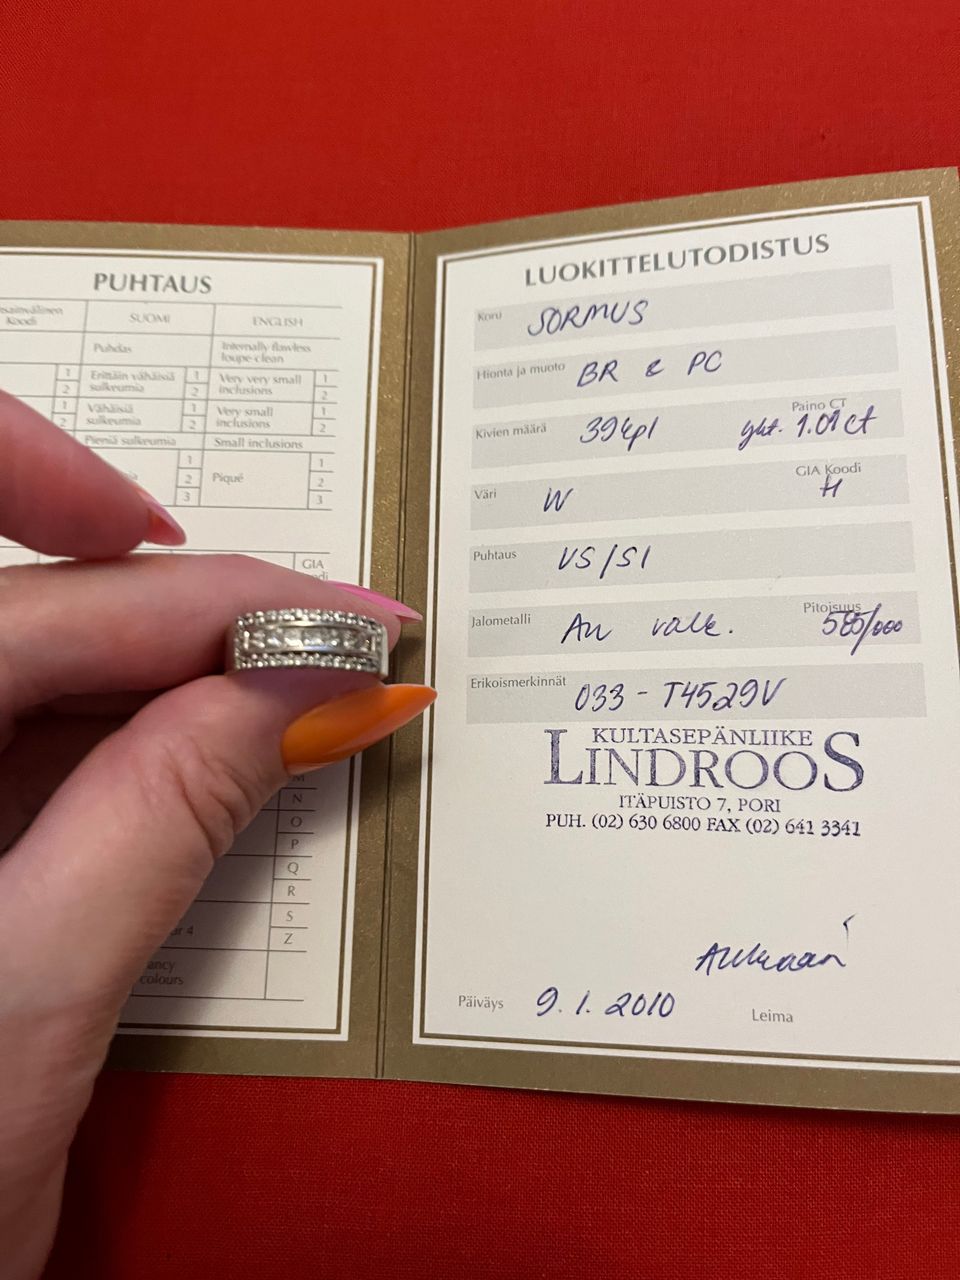 PUHTAUS
Koodi
SUOMI
ENGLISH
Puhdas
Internally flawless
loupe-clean
1
2
Erittäin vähäisiä
sulkeumia
1
2
Very very small
inclusions
1
2
1
2
Vähäisiä
sulkeumia
1
2
Very small
inclusions
1
2
Pieniä sulkeumia
Small inclusions
1
2
3
Piqué
1
2
3
GIA
M
N
O
P
Q
R
S
Z
colours
LUOKITTELUTODISTUS
Koru SORMUS
Hionta ja muoto BR & PC
Kivien määrä 39 kpl Paino CT yht. 1.01 ct
Väri W GIA Koodi H
Puhtaus VS/SI
Jalometalli Au valk. Pitoisuus 585/000
Erikoismerkinnät 033-T4529V
KULTASEPÄNLIIKE
LINDROOS
ITÄPUISTO 7, PORI
PUH. (02) 630 6800 FAX (02) 641 3341
Päiväys 9.1.2010 Leima